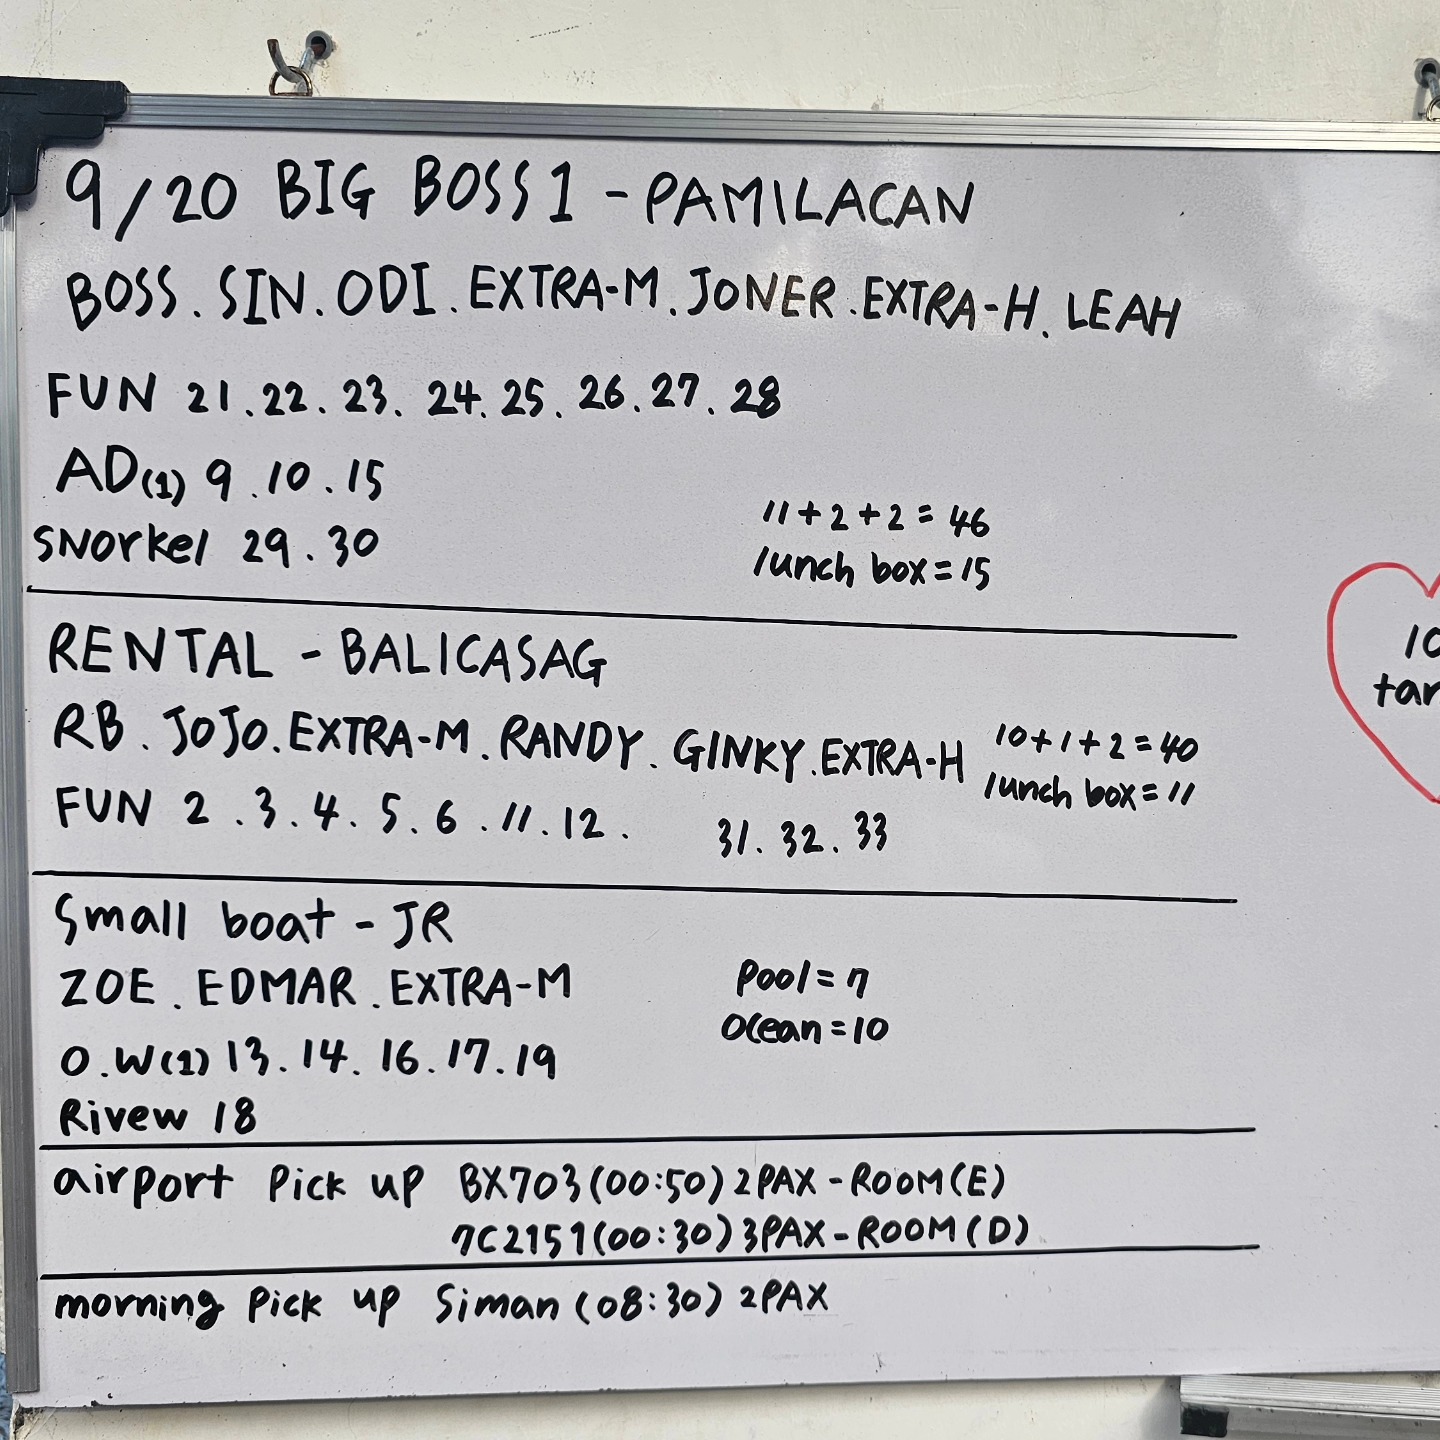 9/20 BIG BOSS1 - PAMILACAN
BOSS. SIN. ODI. EXTRA-M. JONER. EXTRA-H. LEAH
FUN 21. 22. 23. 24. 25. 26. 27. 28
AD(1) 9. 10. 15
SNorkel 29. 30
11+2+2=46
lunch box=15
RENTAL - BALICASAG
RB. JOJO. EXTRA-M. RANDY. GINKY. EXTRA-H
10+1+2=40
lunch box=11
FUN 2. 3. 4. 5. 6. 11. 12. 31. 32. 33
Small boat - JR
ZOE. EDMAR. EXTRA-M
O.W(1) 13. 14. 16. 17. 19
Rivew 18
Pool=7
Ocean=10
airport Pick up BX703(00:50) 2PAX-ROOM(E)
7C2151(00:30) 3PAX-ROOM(D)
morning Pick up Siman (08:30) 2PAX
10